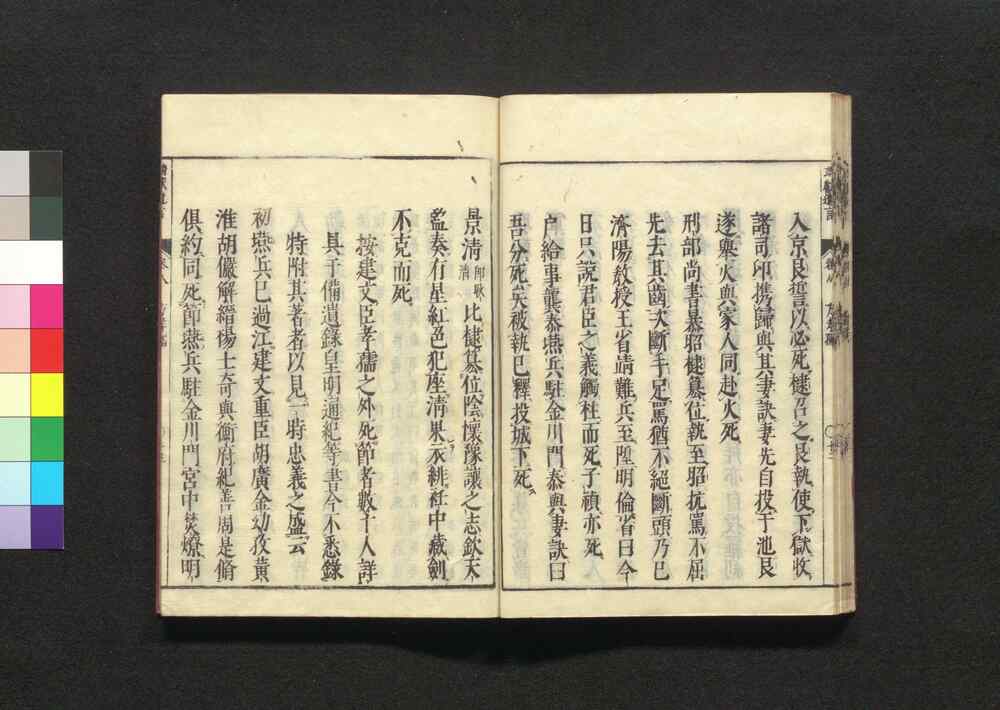 入京良誓以必死棣召之良執使下獄收
諸司印携歸與其妻訣妻先自投于池良
遂舉火與家人同赴火死
刑部尚書暴昭棣簒位執至昭抗罵不屈
先去其齒次斷手足罵猶不絕斷頭乃已
濟陽教授王省靖難兵至陞明倫省曰今
日只說君臣之義觸柱而死子禎亦死
户給事龔泰燕兵駐金川門泰與妻訣曰
吾分死矣被執已釋投城下死
景清 比棣簒位陰懷豫讓之志欽天
監奏有星紅色犯座清果衣緋衽中藏劍
不克而死
按建文臣孝孺之外死節者數十人詳
具于備遺錄皇明通紀等書今不悉錄
特附其著者以見一時忠義之盛云
初燕兵已過江建文重臣胡廣金幼孜黄
淮胡儼解縉楊士奇與衡府紀善周是脩
俱約同死節燕兵駐金川門宮中焚燎明